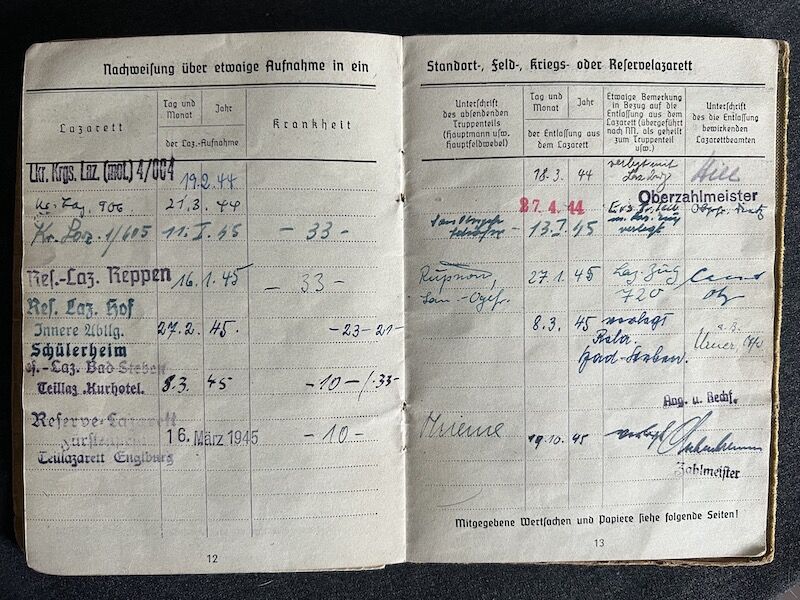 Nachweisung über etwaige Aufnahme in ein
Lazarett
Tag und Monat
Jahr
der Laz.-Aufnahme
Krankheit
Lkr. Krgs. Laz. (mot.) 4/664
19.2.44
Kr. Laz. 906
21.3.44
Kr. Laz. 1/605
11. I. 45
- 33 -
Res.-Laz. Reppen
16.1.45
- 33 -
Res. Laz. Hof
Innere Abtlg.
27.2. 45.
- 23 - 21 -
Schülerheim
Res.-Laz. Bad Steben
Teillaz. Kurhotel.
8.3. 45
- 10 - /. 33 -
Reserve-Lazarett
16. März 1945
- 10 -
Teillazarett Englburg
12
Standort-, Feld-, Kriegs- oder Reservelazarett
Unterschrift des absendenden Truppenteils (Hauptmann usw. Hauptfeldwebel)
Tag und Monat
Jahr
der Entlassung aus dem Lazarett
Etwaige Bemerkung in Bezug auf die Entlassung aus dem Lazarett (übergeführt nach NN, als geheilt zum Truppenteil usw.)
Unterschrift des die Entlassung bewirkenden Lazarettbeamten
18.3. 44
verlegt mit
Hill
Oberzahlmeister
27.4.44
13. I. 45
verlegt
27.1. 45
Laz. Zug
San.-Ogefr.
720
8.3. 45
verlegt
Bad-Steben.
Ang. u. Rechf.
19.10.45
verlegt
Zahlmeister
Mitgegebene Wertsachen und Papiere siehe folgende Seiten!
13